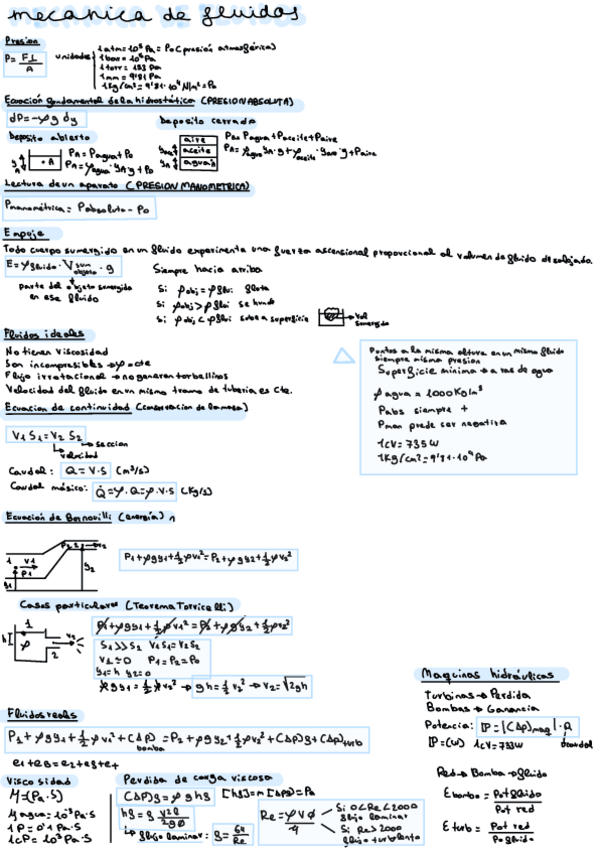 MECANICA DE FLUIDOS
Presion
P = F⊥/A
unidades
1 atm = 10⁵ Pa = Po (presión atmosférica)
1 bar = 10⁵ Pa
1 torr = 133 Pa
1 mm = 9'81 Pa
1 Kg/cm² = 9'81·10⁴ N/m² = Pa
Ecuación fundamental de la hidrostática (PRESION ABSOLUTA)
dP = -φg dy
Deposito abierto
PA = Pagua + Po
PA = φagua·yA·g + Po
Deposito cerrado
aire
aceite
agua
PA = Pagua + Paceite + Paire
Lectura de un aparato (PRESION MANOMETRICA)
Pmanométrica = Pabsoluta - Po
Empuje
Todo cuerpo sumergido en un fluido experimenta una fuerza ascensional proporcional al volumen de fluido desalojado.
E = φfluido · Vsum objeto · g
parte del objeto sumergida
en ese fluido
Siempre hacia arriba
Si φobj = φflui flota
Si φobj > φflui se hunde
Si φobj < φflui sube a superficie
Vol sumergido
Fluidos ideales
No tienen viscosidad
Son incompresibles → φ = cte
Flujo irrotacional → no generan torbellinos
Velocidad del fluido en un mismo tramo de tuberia es cte.
Puntos a la misma altura en un mismo fluido
siempre misma presion
Superficie minima → a ras de agua
φagua = 1000 Kg/m³
Pabs siempre +
Pman puede ser negativa
1CV = 735W
1Kg/cm² = 9'81·10⁴ Pa
Ecuacion de continuidad (conservacion de la masa)
V1 S1 = V2 S2
seccion
velocidad
Caudal: Q = V·S (m³/s)
Caudal másico: Q̇ = φ·Q = φ·V·S (Kg/s)
Ecuación de Bernouilli (energía)
P1 + φgy1 + ½φv1² = P2 + φgy2 + ½φv2²
Casos particulares (Teorema Torricelli)
P1 + φgy1 + ½φv1² = P2 + φgy2 + ½φv2²
S1 >> S2 V1S1 = V2S2
V1 ≈ 0 P1 = P2 = Po
y1 = h y2 = 0
φgy1 = ½φv2² → gh = ½v2² → v2 = √2gh
Fluidos reales
P1 + φgy1 + ½φv1² + (ΔP)bomba = P2 + φgy2 + ½φv2² + (ΔP)f + (ΔP)turb
e1 + eB = e2 + ef + et
Viscosidad
M = (Pa·S)
1P = 0'1 Pa·S
Perdida de carga viscosa
(ΔP)f = φg hf
[hf] = m [ΔP] = Pa
flujo laminar: f = 64/Re
Si 0<Re<2000
flujo laminar
Si Re>2000
flujo turbulento
Maquinas hidráulicas
Turbinas → Perdida
Bombas → Ganancia
Potencia: P = |(ΔP)maq|·Q
P = (W)
caudal
Red → Bomba → fluido
Ebomba = Pot fluido / Pot red
Eturb = Pot red / Po fluido